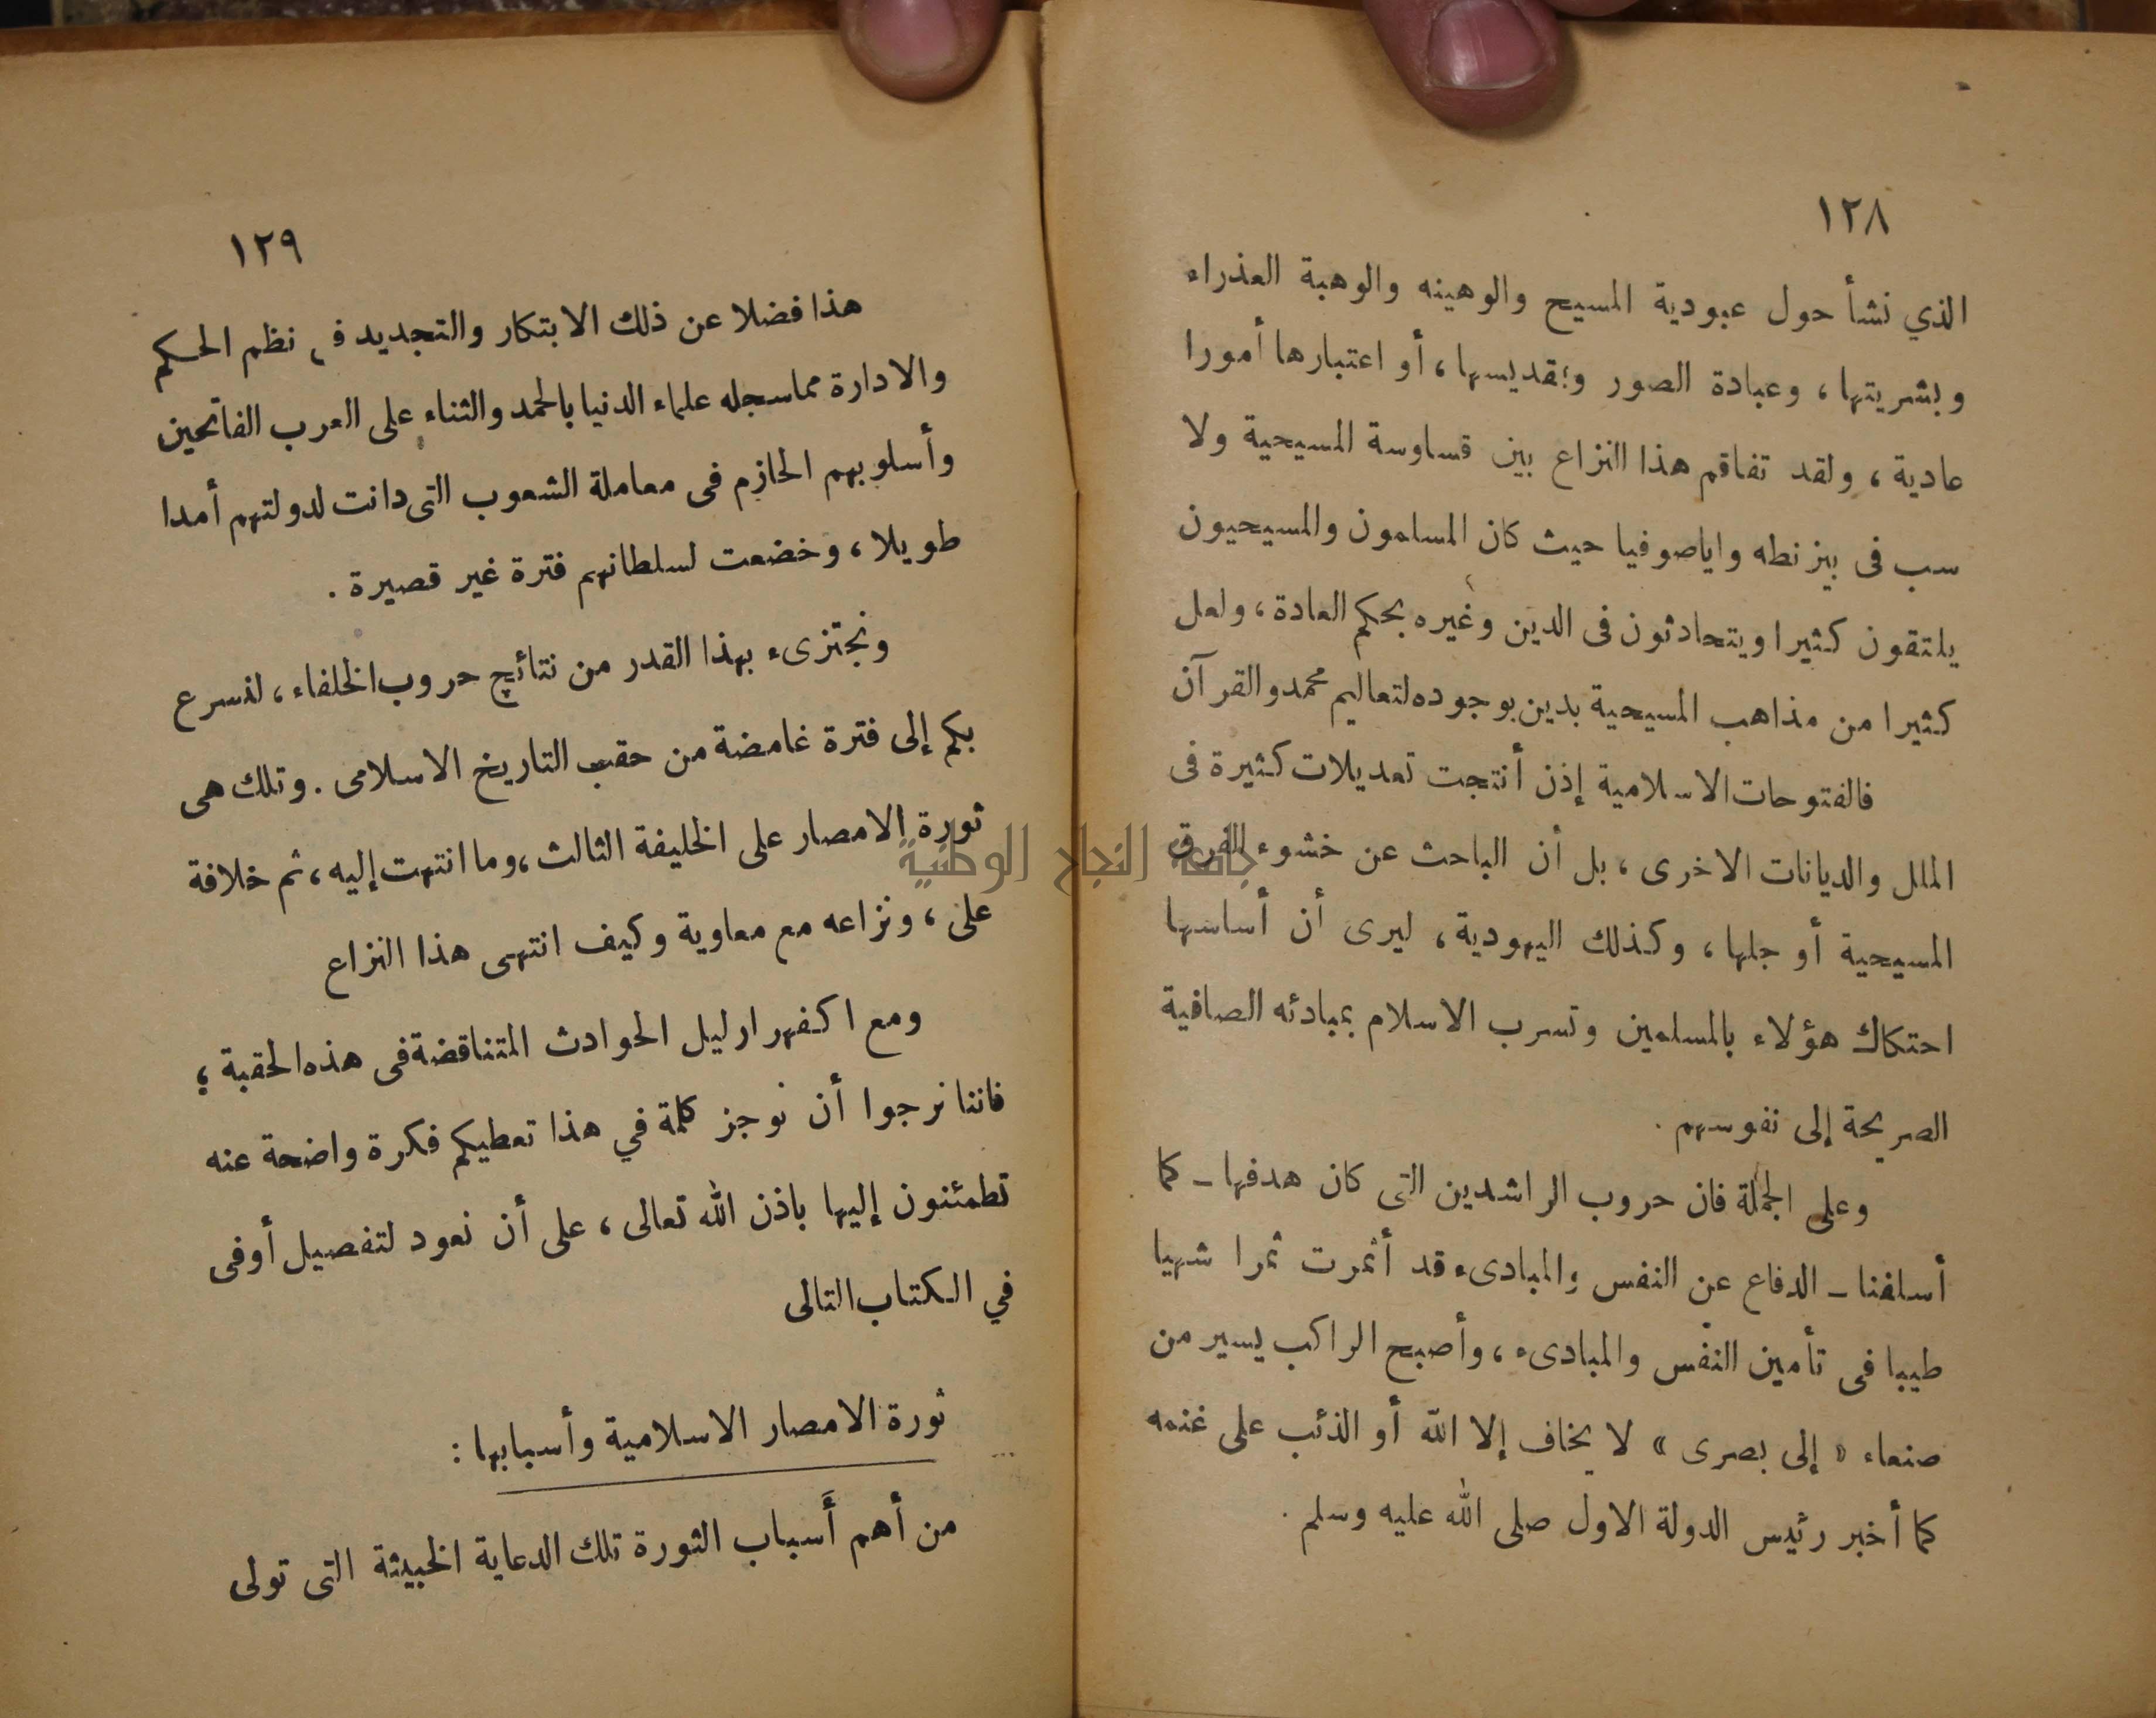 ١٢٨
الذي نشأ حول عبودية المسيح والوهينه والوهبة العذراء
وبشريتها ، وعبادة الصور وتقديسها ، أو اعتبارها أمورا
عادية ، ولقد تفاقم هذا النزاع بين قساوسة المسيحية ولا
سب فى بيزنطه واياصوفيا حيث كان المسلمون والمسيحيون
يلتقون كثيرا ويتحادثون فى الدين وغيره بحكم العادة ، ولعل
كثيرا من مذاهب المسيحية بدين بوجوده لتعاليم محمد والقرآن
فالفتوحات الاسلامية إذن أنتجت تعديلات كثيرة فى
الملل والديانات الاخرى ، بل أن الباحث عن خشوء الفرق
المسيحية أو جلها ، وكذلك اليهودية ، ليرى أن أساسها
احتكاك هؤلاء بالمسلمين وتسرب الاسلام بمبادئه الصافية
الصريحة إلى نفوسهم .
وعلى الجملة فان حروب الراشدين التى كان هدفها ـ كما
أسلفنا ـ الدفاع عن النفس والمبادىء قد أثمرت ثمرا شهيا
طيبا فى تأمين النفس والمبادىء ، وأصبح الراكب يسير من
صنعاء « إلى بصرى » لا يخاف إلا الله أو الذئب على غنمه
كما أخبر رئيس الدولة الاول صلى الله عليه وسلم .
١٢٩
هذا فضلا عن ذلك الابتكار والتجديد فى نظم الحكم
والادارة مما سجله علماء الدنيا بالحمد والثناء على العرب الفاتحين
وأسلوبهم الحازم فى معاملة الشعوب التى دانت لدولتهم أمدا
طويلا ، وخضعت لسلطانهم فترة غير قصيرة .
ونجتزىء بهذا القدر من نتائج حروب الخلفاء ، لنسرع
بكم إلى فترة غامضة من حقب التاريخ الاسلامى . وتلك هى
ثورة الامصار على الخليفة الثالث ، وما انتهت إليه ، ثم خلافة
على ، ونزاعه مع معاوية وكيف انتهى هذا النزاع
ومع اكفهرار ليل الحوادث المتناقضة فى هذه الحقبة ؛
فاننا نرجوا أن نوجز كلمة في هذا تعطيكم فكرة واضحة عنه
تطمئنون إليها باذن الله تعالى ، على أن نعود لتفصيل أوفى
في الكتاب التالى
ثورة الامصار الاسلامية وأسبابها :
من أهم أسباب الثورة تلك الدعاية الخبيثة التى تولى
جامعة النجاح الوطنية